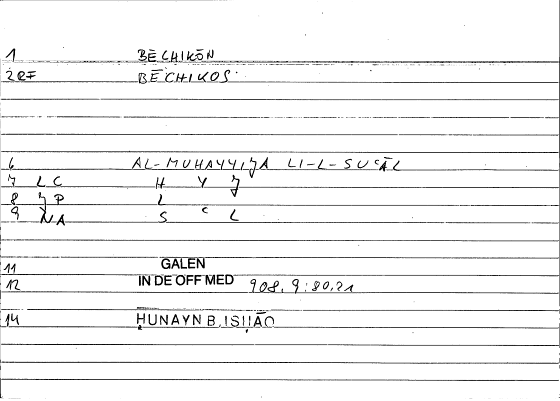 1 BĒCHIKŌN
2RF BĒCHIKOS
6 AL-MUHAYYIJA LI-L-SUʿĀL
7 LC H Y J
8 JP L
9 NA S ʿ L
11 GALEN
12 IN DE OFF MED 908, 9:80,21
14 ḤUNAYN B.ISḤĀQ